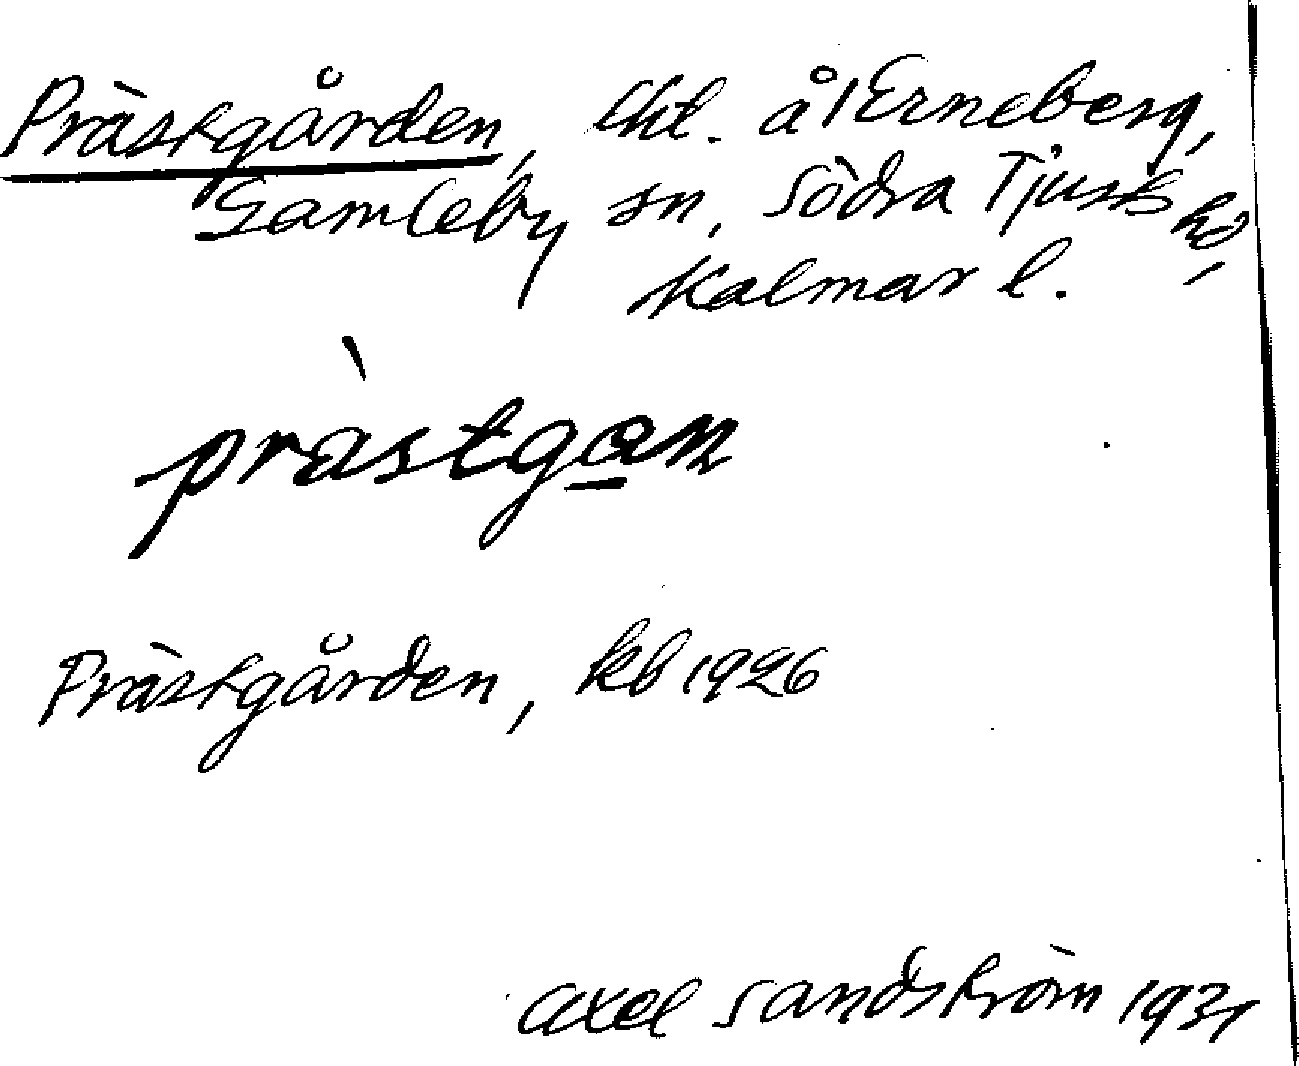 Prästgården, lht. å 1 Erneberg,
Gamleby sn, Södra Tjusts hd,
Kalmar l.
prästgan
Prästgården, kb 1926
Axel Sandström 1931